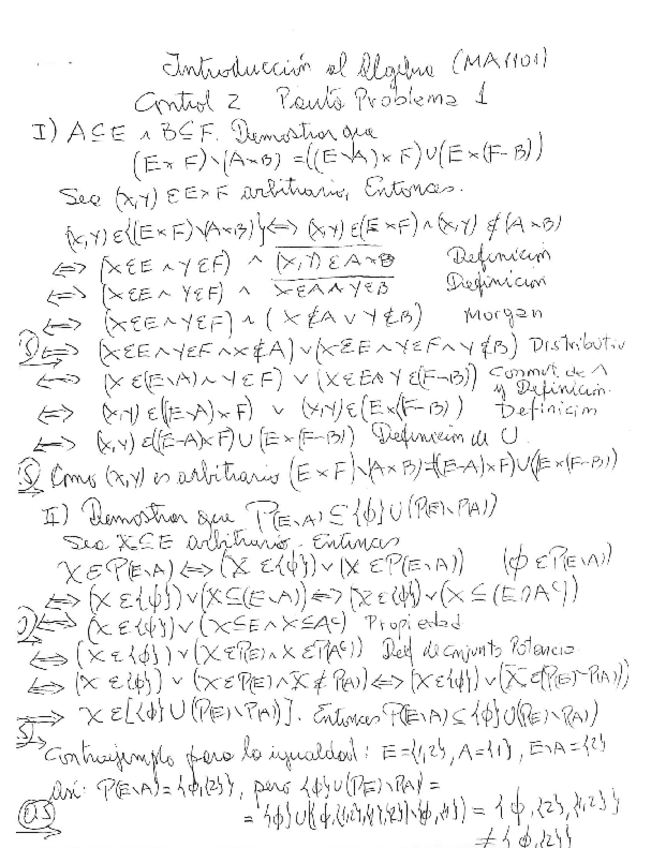 Introducción al Algebra (MA1101)
Control 2 Pauta Problema 1
I) A⊆E ∧ B⊆F. Demostrar que
(E×F)\(A×B) = ((E\A)×F)∪(E×(F-B))
Sea (x,y) ∈ E×F arbitrario, Entonces.
(x,y) ∈{(E×F)\(A×B)} ⟺ (x,y) ∈(E×F) ∧ (x,y) ∉ (A×B)
⟺ (x∈E ∧ y∈F) ∧ \overline{(x,y) ∈ A×B} Definición
⟺ (x∈E ∧ y∈F) ∧ \overline{x∈A ∧ y∈B} Definición
⟺ (x∈E ∧ y∈F) ∧ (x∉A ∨ y∉B) Morgan
⟺ (x∈E ∧ y∈F ∧ x∉A) ∨ (x∈E ∧ y∈F ∧ y∉B) Distributiv
⟺ (x∈(E\A) ∧ y∈F) ∨ (x∈E ∧ y∈(F-B)) Conmut. de ∧ y Definición.
⟺ (x,y) ∈((E\A)×F) ∨ (x,y)∈(E×(F-B)) Definición
⟺ (x,y) ∈((E-A)×F)∪(E×(F-B)) Definición de ∪.
Como (x,y) es arbitrario (E×F)\(A×B)=((E-A)×F)∪(E×(F-B))
II) Demostrar que P(E\A) ⊆ {ϕ}∪(P(E)\P(A))
Sea X⊆E arbitrario. Entonces
X∈P(E\A) ⟺ (X∈{ϕ}) ∨ (X∈P(E\A)) (ϕ∈P(E\A))
⟺ (X∈{ϕ}) ∨ (X⊆(E\A)) ⟺ (X∈{ϕ}) ∨ (X⊆(E∩Aᶜ))
⟺ (X∈{ϕ}) ∨ (X⊆E ∧ X⊆Aᶜ) Propiedad
⟺ (X∈{ϕ}) ∨ (X∈P(E) ∧ X∈P(Aᶜ)) Def de conjunto Potencia
⟺ (X∈{ϕ}) ∨ (X∈P(E) ∧ X∉P(A)) ⟺ (X∈{ϕ}) ∨ (X∈(P(E)-P(A)))
⟹ X∈[{ϕ}∪(P(E)\P(A))]. Entonces P(E\A)⊆{ϕ}∪(P(E)\P(A))
Contraejemplo para la igualdad: E={1,2}, A={1}, E\A={2}
Así: P(E\A)={ϕ,{2}}, pero {ϕ}∪(P(E)\P(A))=
={ϕ}∪({ϕ,{1,2},{1},{2}}\{ϕ,{1}}) = {ϕ,{2},{1,2}}
≠{ϕ,{2}}
0.5